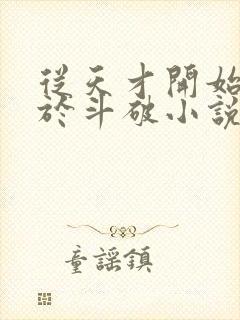 從天才開始
於斗破小說
童謠鎮